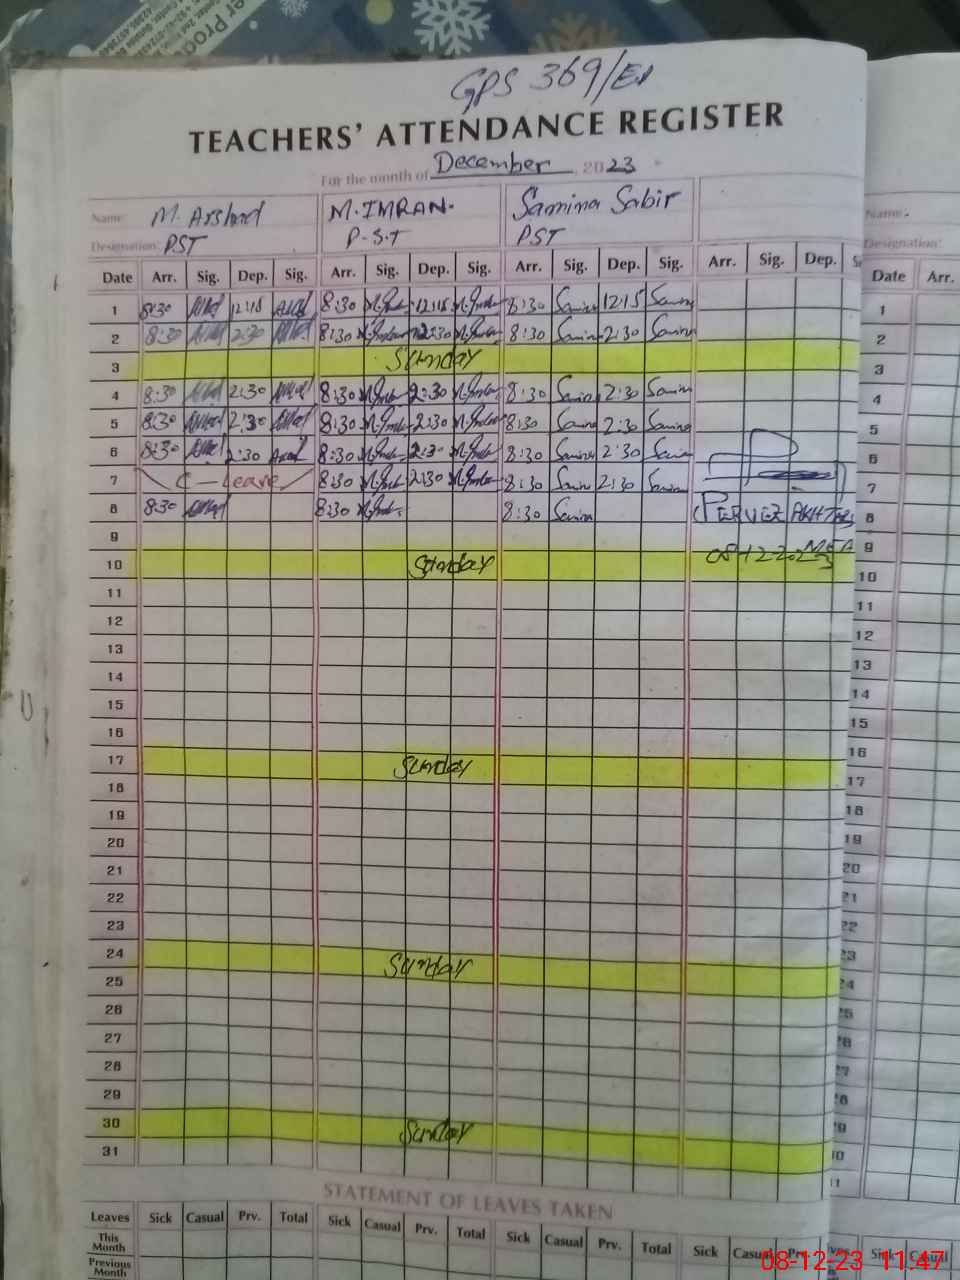 GPS 369/EB
TEACHERS' ATTENDANCE REGISTER
For the month of December, 2023
Name: M. Arshad M. IMRAN. Samina Sabir Name:
Designation: PST P-S-T PST Designation:
Date Arr. Sig. Dep. Sig. Arr. Sig. Dep. Sig. Arr. Sig. Dep. Sig. Arr. Sig. Dep. Date Arr.
1 8:30 12:15 8:30 12:15 8:30 Samina 12:15 Samina 1
2 8:30 2:30 8:30 2:30 8:30 Samina 2:30 Samina 2
3 Sunday 3
4 8:30 2:30 8:30 2:30 8:30 Samina 2:30 Samina 4
5 8:30 2:30 8:30 2:30 8:30 Samina 2:30 Samina 5
6 8:30 2:30 8:30 2:30 8:30 Samina 2:30 Samina 6
7 C-Leave 8:30 2:30 8:30 Samina 2:30 Samina 7
8 8:30 8:30 8:30 Samina PERVEZ AKHTAR 8
9 08-12-2023 MEA 9
10 Sunday 10
11 11
12 12
13 13
14 14
15 15
16 16
17 Sunday 17
18 18
19 19
20 20
21 21
22 22
23 23
24 Sunday 24
25
26
27
28
29
30 Sunday
31
STATEMENT OF LEAVES TAKEN
Leaves Sick Casual Prv. Total Sick Casual Prv. Total Sick Casual Prv. Total Sick Casual Prv. Sick Casual
This Month
Previous Month
08-12-23 11:47